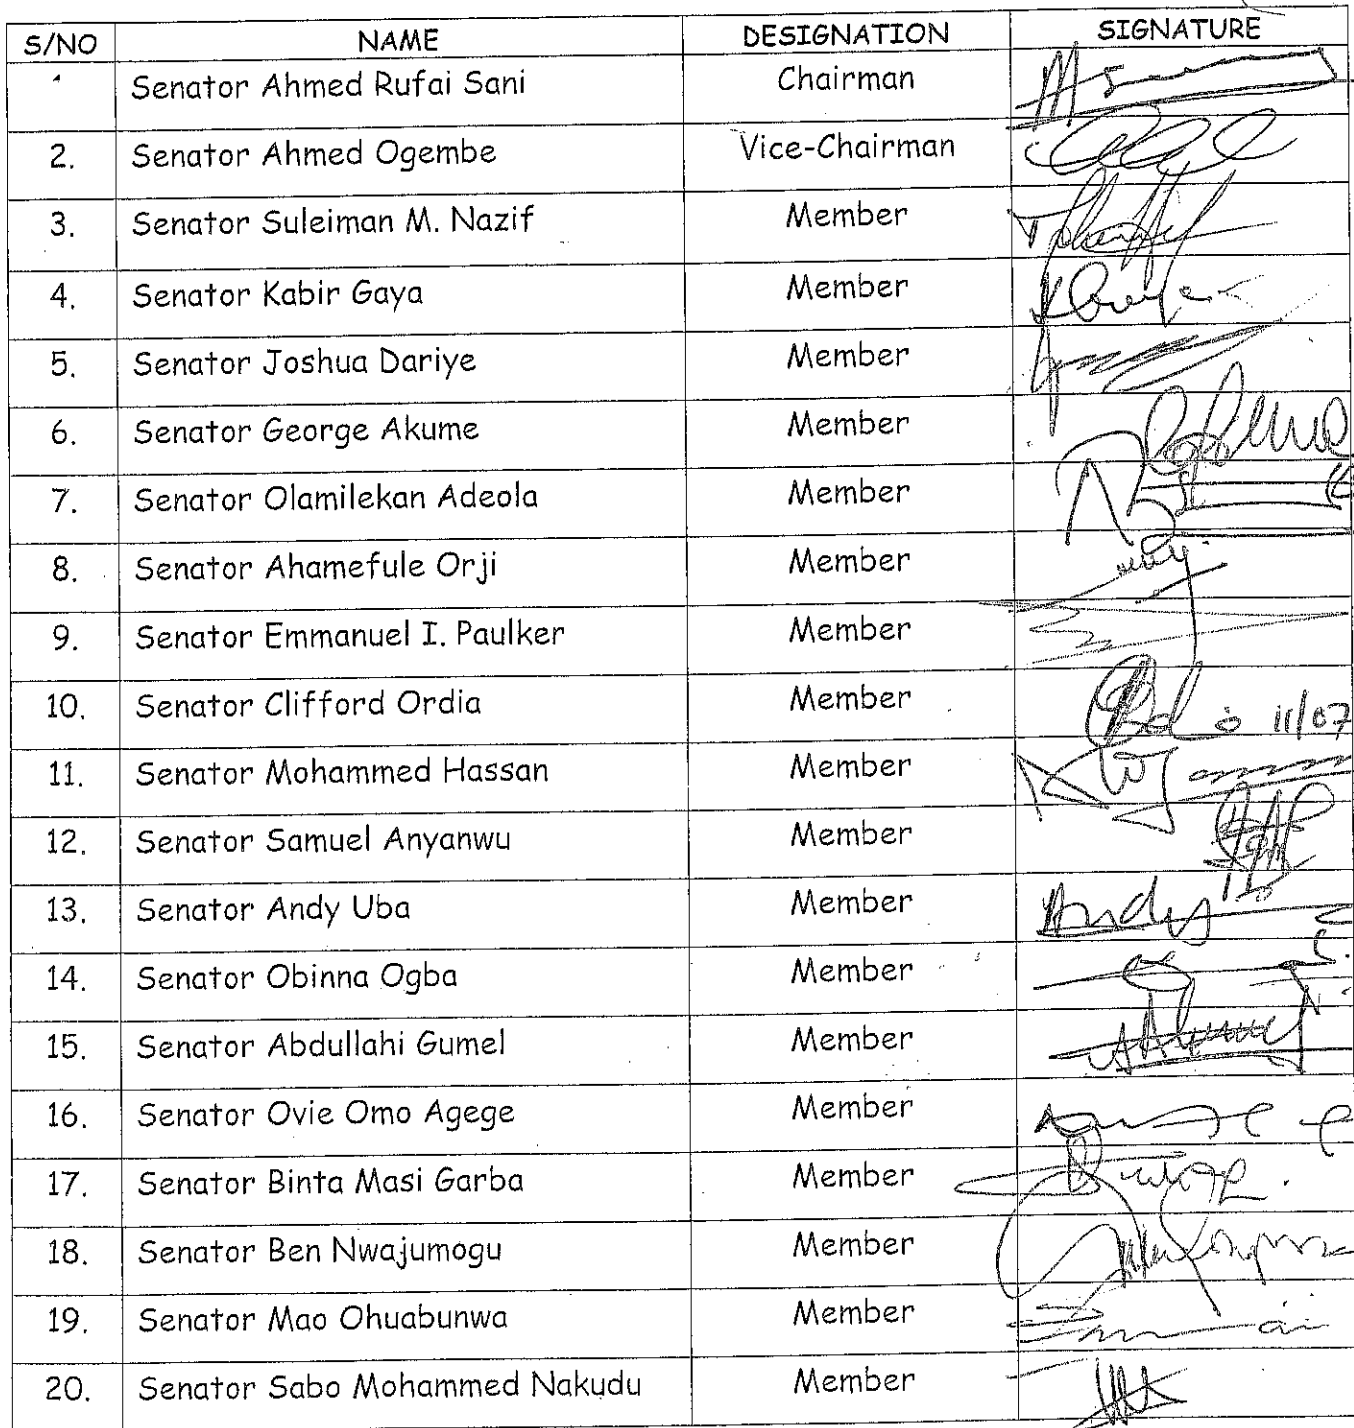 S/NO NAME DESIGNATION SIGNATURE
Senator Ahmed Rufai Sani Chairman
2. Senator Ahmed Ogembe Vice-Chairman
3. Senator Suleiman M. Nazif Member
4. Senator Kabir Gaya Member
5. Senator Joshua Dariye Member
6. Senator George Akume Member
7. Senator Olamilekan Adeola Member
8. Senator Ahamefule Orji Member
9. Senator Emmanuel I. Paulker Member
10. Senator Clifford Ordia Member 11/07
11. Senator Mohammed Hassan Member
12. Senator Samuel Anyanwu Member
13. Senator Andy Uba Member Andy
14. Senator Obinna Ogba Member
15. Senator Abdullahi Gumel Member
16. Senator Ovie Omo Agege Member
17. Senator Binta Masi Garba Member
18. Senator Ben Nwajumogu Member
19. Senator Mao Ohuabunwa Member
20. Senator Sabo Mohammed Nakudu Member